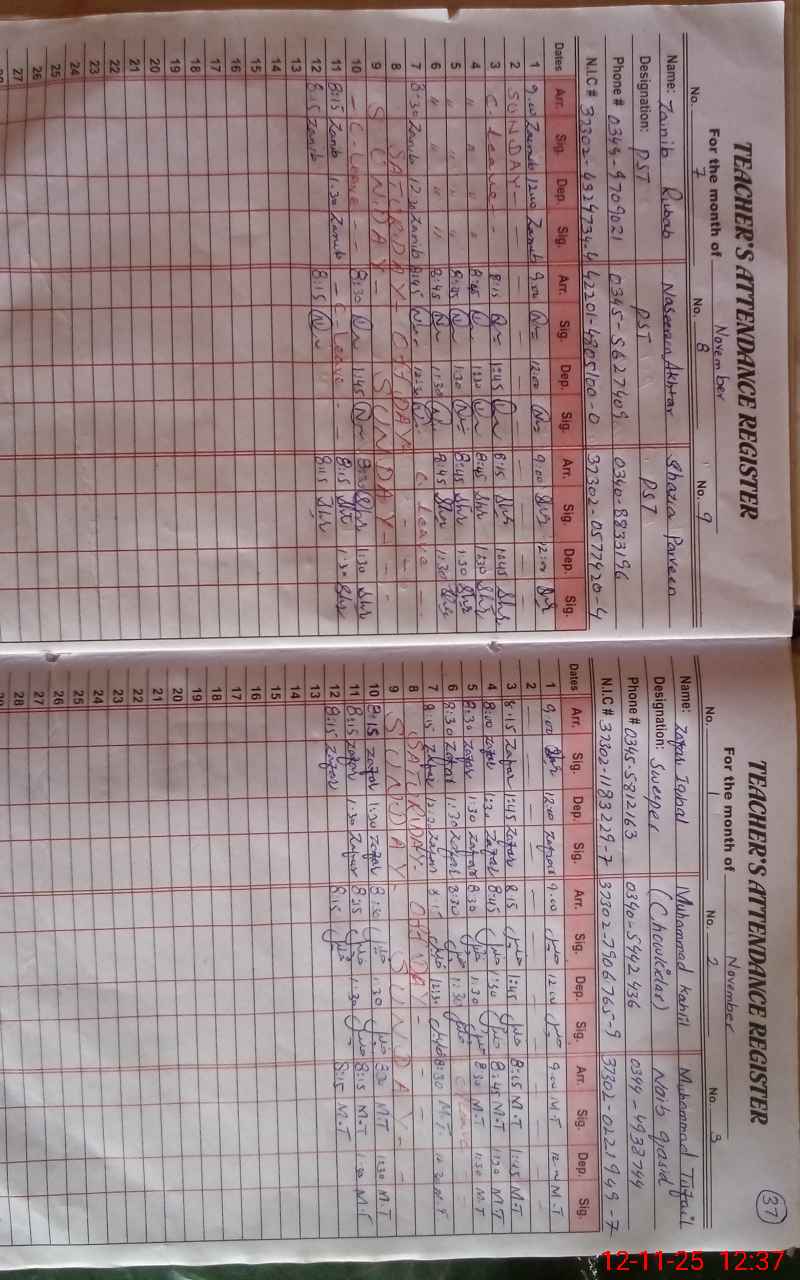 TEACHER'S ATTENDANCE REGISTER
For the month of November
No. 7 No. 8 No. 9
Name: Zainib Rubab Naseem Akhtar Shazia Parveen
Designation: PST PST PST
Phone # 0349-9709021 0345-5627409 0340-8833196
N.I.C # 37302-4929734-4 42201-4805100-0 37302-0577920-4
Dates Arr. Sig. Dep. Sig. Arr. Sig. Dep. Sig. Arr. Sig. Dep. Sig.
1 9.00 Zainib 12.00 Zainib 9.00 12:00 9:00 Shz 12:00 Shz
2 SUNDAY
3 C-Leave 8:15 1:45 8:15 Shz 1:45 Shz
4 " " " " 8:45 1:30 8:45 Shz 1:30 Shz
5 " " " " 8:45 1:30 8:45 Shz 1:30 Shz
6 " " " " 8:45 1:30 8:45 Shz 1:30 Shz
7 8:30 Zainib 12:30 Zainib 8:45 12:30 C. Leave
8 SATURDAY OFF DAY
9 SUNDAY SUNDAY
10 C-Leave 8:30 1:45 8:30 Shz 1:30 Shz
11 8:15 Zainib 1:30 Zainib C-Leave 8:15 Shz 1:30 Shz
12 8:15 Zainib 8:15 8:15 Shz
13
14
15
16
17
18
19
20
21
22
23
24
25
26
27
TEACHER'S ATTENDANCE REGISTER
37
For the month of November
No. 1 No. 2 No. 3
Name: Zafar Iqbal Muhammad Kahlil Muhammad Tufail
Designation: Sweeper (Chowkidar) Naib Qasid
Phone # 0345-5812163 0340-5442436 0344-4933744
N.I.C # 37302-1183229-7 37302-7906765-9 37302-0221949-7
Dates Arr. Sig. Dep. Sig. Arr. Sig. Dep. Sig. Arr. Sig. Dep. Sig.
1 9.00 12:00 Zafar 9.00 12.00 9.00 M.T 12.00 M.T
2
3 8:15 Zafar 1:45 Zafar 8:15 1:45 8:15 M.T 1:45 M.T
4 8:00 Zafar 1:30 Zafar 8:45 1:30 8:45 M.T 1:30 M.T
5 8:30 Zafar 1:30 Zafar 8:30 1:30 8:30 M.T 1:30 M.T
6 8:30 Zafar 1:30 Zafar 8:30 1:30 C Leave
7 8:15 Zafar 12:30 Zafar 8:15 12:30 8:30 M.T. 12:30 M.T
8 SATURDAY OFF DAY
9 SUNDAY SUNDAY
10 8:15 Zafar 1:30 Zafar 8:30 1:30 8:30 M.T 1:30 M.T
11 8:15 Zafar 1:30 Zafar 8:15 1:30 8:15 M.T 1:30 M.T
12 8:15 Zafar 8:15 8:15 M.T
13
14
15
16
17
18
19
20
21
22
23
24
25
26
27
28
12-11-25 12:37